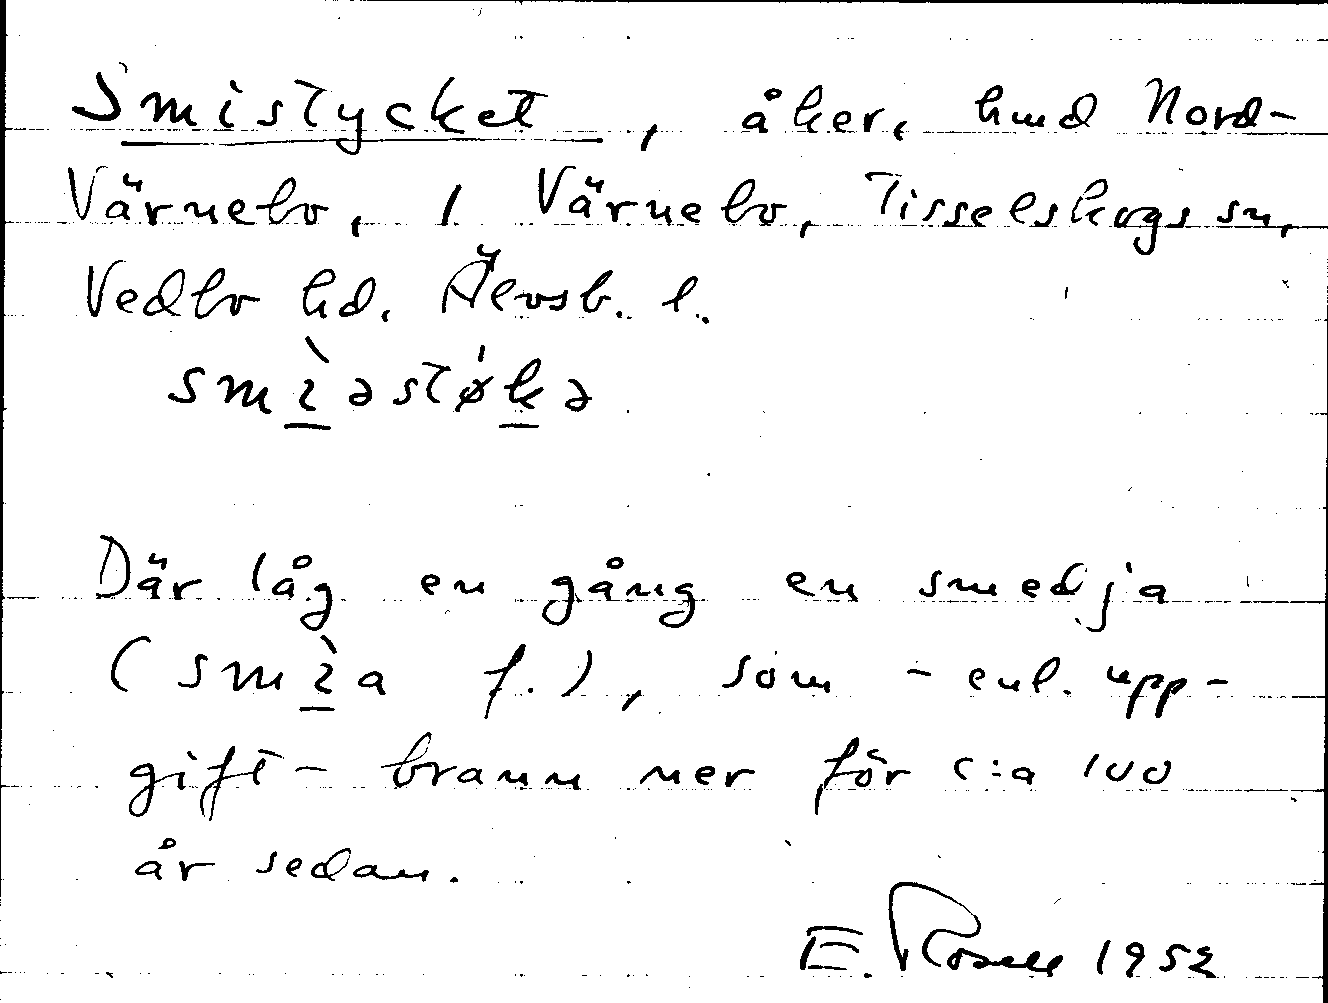 Smistycket, åker, hmd Nord-
Värnebo, 1 Värnebo, Tisselskogs sn,
Vedbo hd. Älvsb. l.
smìəstǿkə
Där låg en gång en smedja
(smìa f.), som - enl. upp-
gift - brann ner för c:a 100
år sedan.
E. Rosell 1952